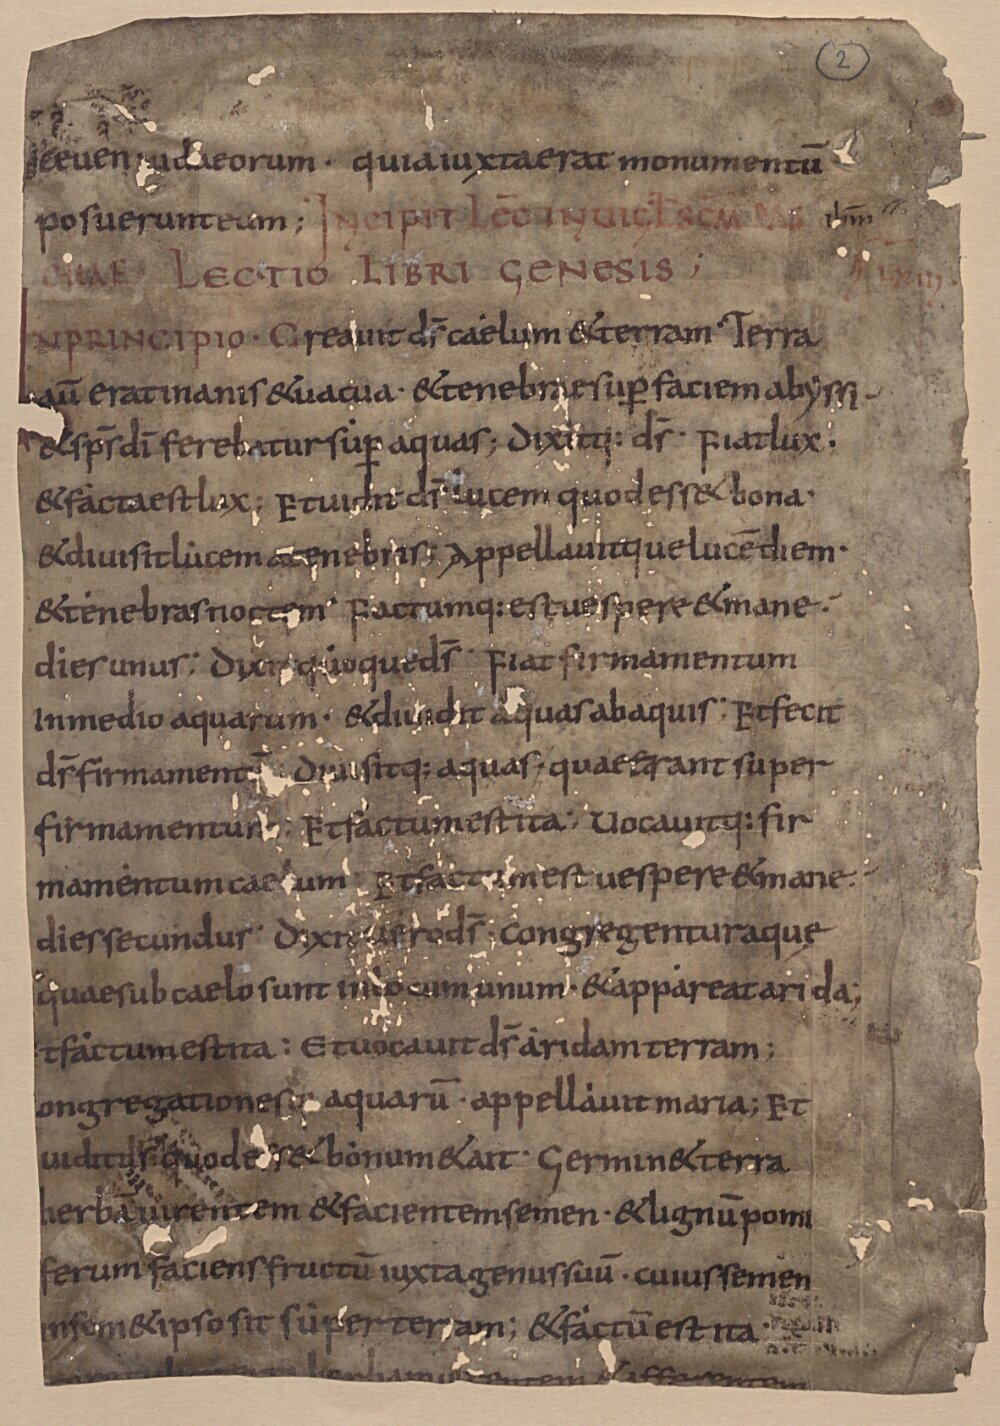 2
ceuen iudaeorum · quia iuxta erat monumentū
posuerunt eum ; Incipit Lēc in uigł scæ pas
chae Lectio Libri Genesis ;
n principio · Creauit dš caelum & terram · Terra
aū erat inanis & uacua · & tenebrae sup faciem abyssi
& sps di ferebatur sup aquas ; Dixitq: dš · Fiat lux ·
& facta est lux ; Et uidit dš lucem quod ess& bona ·
& diuisit lucem a tenebris ; Appellauitque lucē diem ·
& tenebras noctem · Factumq: est uespere & mane ·
dies unus ; Dixit quoque dš · Fiat firmamentum
In medio aquarum · & diuidit aquas ab aquis ; Et fecit
dš firmament Diuisitq; aquas · quae erant super
firmamentum ; Et factum est ita ; Uocauitq: fir
mamentum caelum Et factum est uespere & mane ·
dies secundus · Dixit uero dš · Congregentur aquę
quae sub caelo sunt in locum unum · & appareat arida ;
t factum est ita : Et uocauit dš aridam terram ;
ongregationesq aquarū · appellauit maria ; Et
uidit dš quod ess& bonum & ait · Germin& terra
herbā uirentem & facientem semen · & lignū pomi
ferum faciens fructū iuxta genus suū · cuius semen
in sem& ipso sit super terram ; & factū est ita ·
herbam uirentem & afferentem